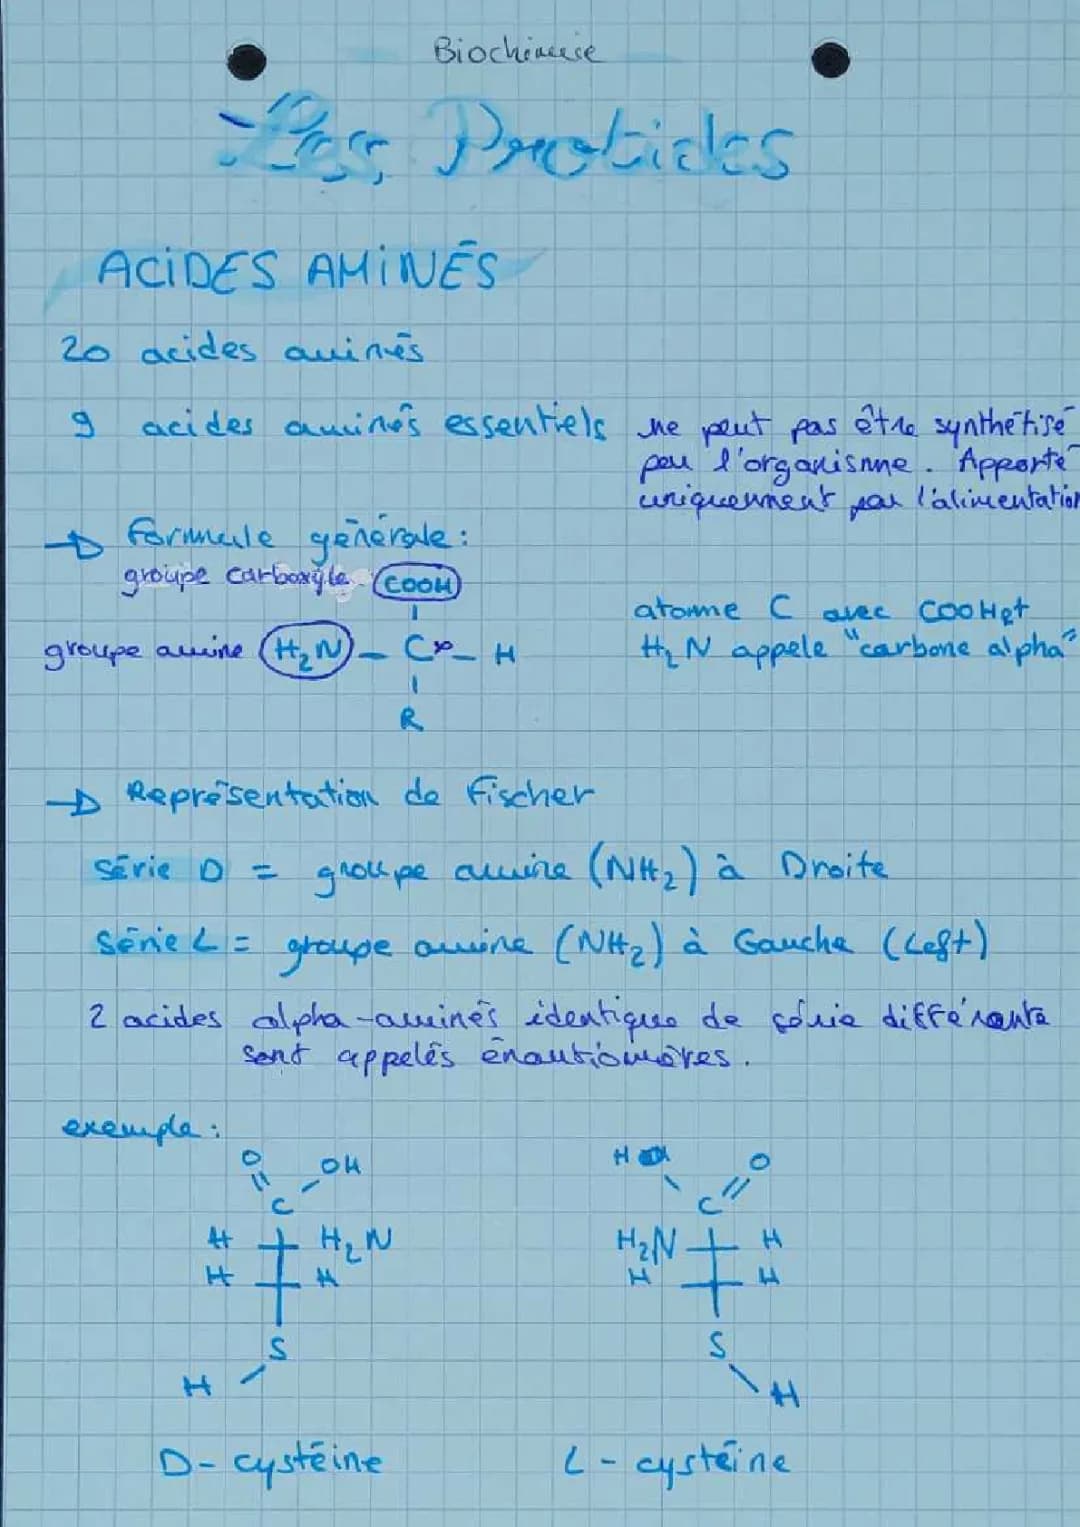 Biochimie
Les Protides
ACIDES AMINÉS
20 acides aminés
9 acides aminés essentiels
ne peut pas être synthétisé
par l'organisme. Apporté
uniquement par l'alimentation
→ Formule générale :
groupe carboxyle COOH
groupe amine H₂N — Cα — H
R
atome C avec COOH et
H₂N appele "carbone alpha"
→ Représentation de Fischer
Série D = groupe amine (NH₂) à Droite
Série L = groupe amine (NH₂) à Gauche (Left)
2 acides alpha-aminés identiques de série différente
sont appelés énantiomères.
exemple :
O OH
C
H H₂N
H H
S
H
D- cystéine
HO O
C
H₂N H
H H
S
H
L - cystéine